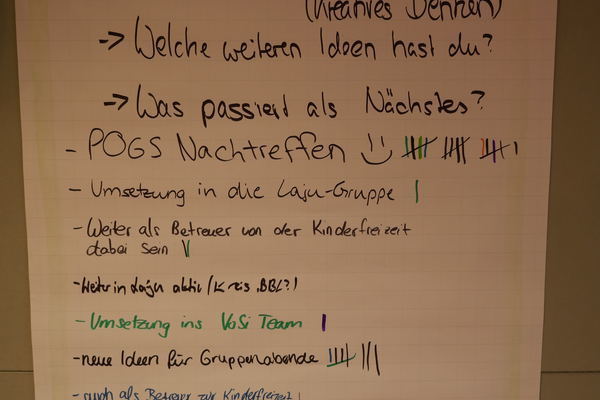 (Kreatives Denken)
-> Welche weiteren Ideen hast du?
-> Was passiert als Nächstes?
- POGS Nachtreffen
- Umsetzung in die Laju-Gruppe
- Weiter als Betreuer von der Kinderfreizeit
dabei sein
- Weiter in Laju aktiv (Kreis, BBL?)
- Umsetzung ins VoSi Team
- neue Ideen für Gruppenabende
- auch als Betreuer zur Kinderfreizeit